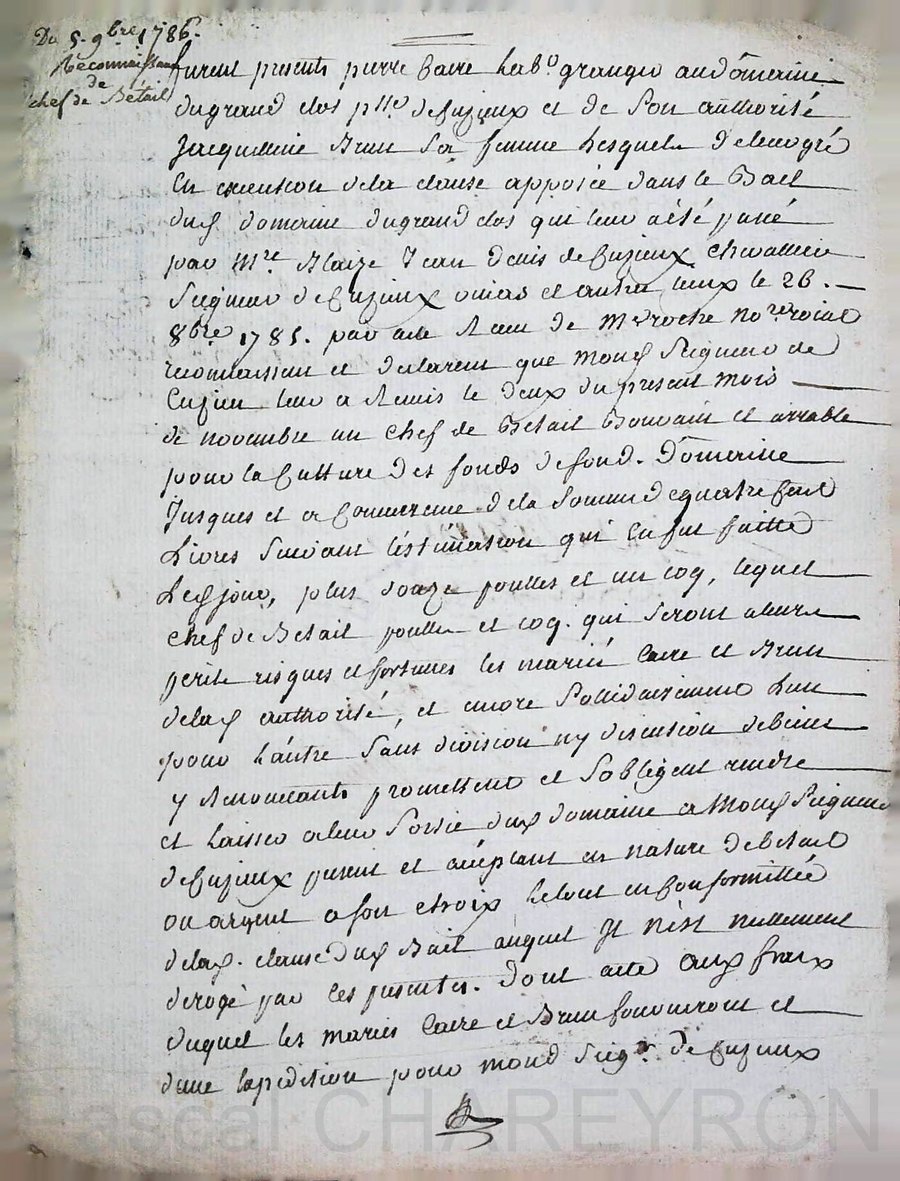 Du 5. 9bre 1786.
Reconnaissance
de
chef de Bétail
furent presents pierre Caire hab.t granger au domaine
du grand clos p.sse de Cuzieux et de son authorité
Jacquelinne Brun sa femme Lesquels de leur gré
En execution de la clause apposée dans le Bail
dud domaine du grand clos qui leur a été passé
par M.re Blaize Jean denis de Cuzieux chevallier
Seigneur de Cuzieux et autres Lieux le 26.
8bre 1785. par acte Reçu de Me roche no.re roial
reconnaissent et declarent que mond Seigneur de
Cuzieu leur a Remis le deux du present mois
de novembre un chef de Bétail Bouvain et arrable
pour la Culture des fonds de domaine
Jusques et a Concurrence de la somme de quatre Cent
Livres suivant l'estimation qui En fut faitte
Led jour, plus douze poulles et un coq, lequel
chef de Bétail poulles et coq. qui seront a leurs
perils risques et fortunes les mariés Caire et Brun
de lad authorité, et encore sollidairement L'un
pour L'autre sans division ny discution de biens
y Renonceants promettent et s'obligent rendre
et Laisser a leur sortie dud domaine a Mond Seigneur
de Cuzieux present et acéptant en nature de bétail
ou argent a son choix Le tout en Conformittée
de lad. clause dud Bail auquel Il n'est nullement
derogé par ces presentes. dont acte aux fraix
duquel les mariés Caire et Brun fourniront et
d'une Expedition pour mond seig.r de Cuzieux
Pascal CHAREYRON